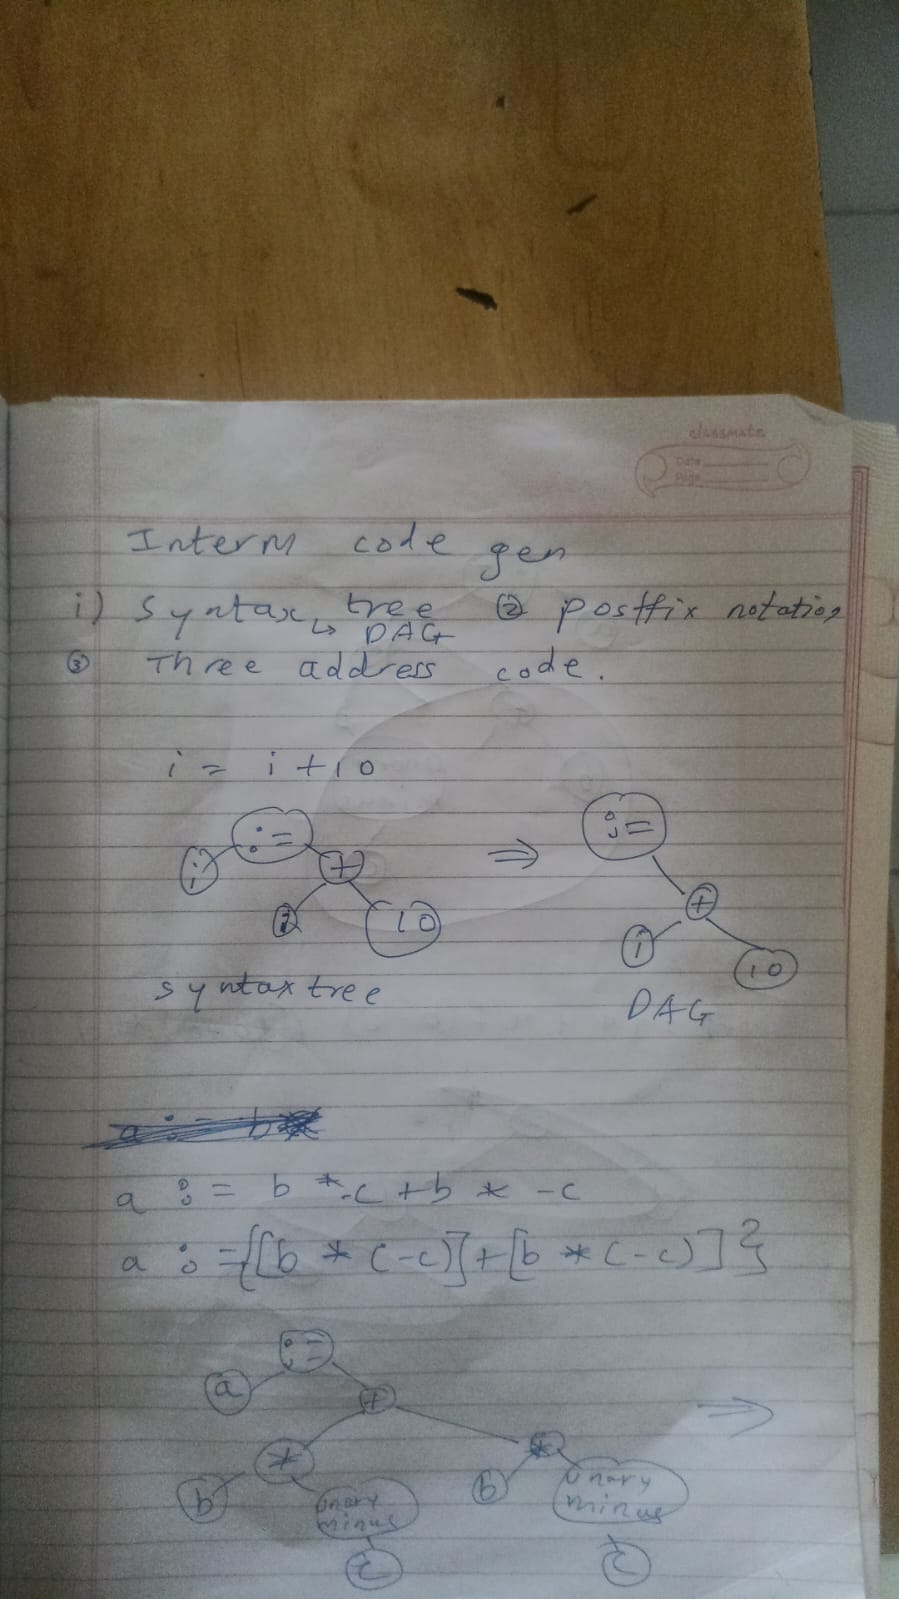 classmate
Date
Page
Interm code gen
i) Syntax tree ② postfix notation
↳ DAG
③ Three address code.
i = i + 10
:= :=
i + ⇒ +
i 10 i 10
syntax tree DAG
a := b *
a := b * -c + b * -c
a := {[b * (-c)] + [b * (-c)]}
:=
a + ⇒
* *
b unary minus b unary minus
c c